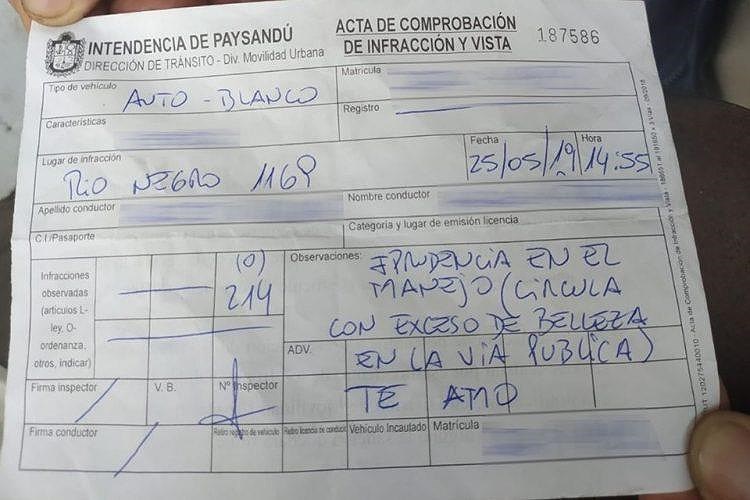 INTENDENCIA DE PAYSANDÚ
DIRECCIÓN DE TRÁNSITO - Div. Movilidad Urbana
ACTA DE COMPROBACIÓN
DE INFRACCIÓN Y VISTA
187586
Tipo de vehículo
AUTO - BLANCO
Matrícula
Características
Registro
Lugar de infracción
RIO NEGRO 1169
Fecha
25/05/19
Hora
14:55
Apellido conductor
Nombre conductor
C.I/Pasaporte
Categoría y lugar de emisión licencia
Infracciones
observadas
(artículos L-
ley, O-
ordenanza,
otros, indicar)
(O)
214
Observaciones:
IPRUDENCIA EN EL
MANEJO (CIRCULA
CON EXCESO DE BELLEZA
ADV.
EN LA VÍA PUBLICA)
TE AMO
Firma inspector
V. B.
Nº Inspector
Firma conductor
Retiro registro de vehículo
Retiro licencia de conducir
Vehículo Incautado
Matrícula